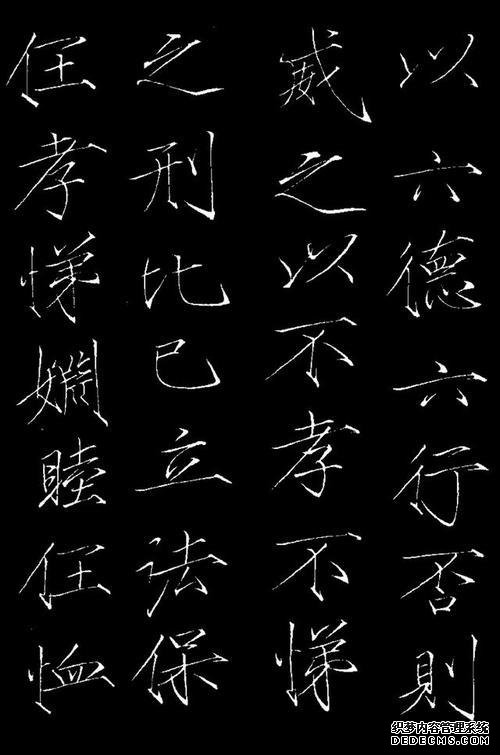 以六德六行否則
威之以不孝不悌
之刑比已立法保
任孝悌嫻睦任恤
织梦内容管理系统
DEDECMS.COM